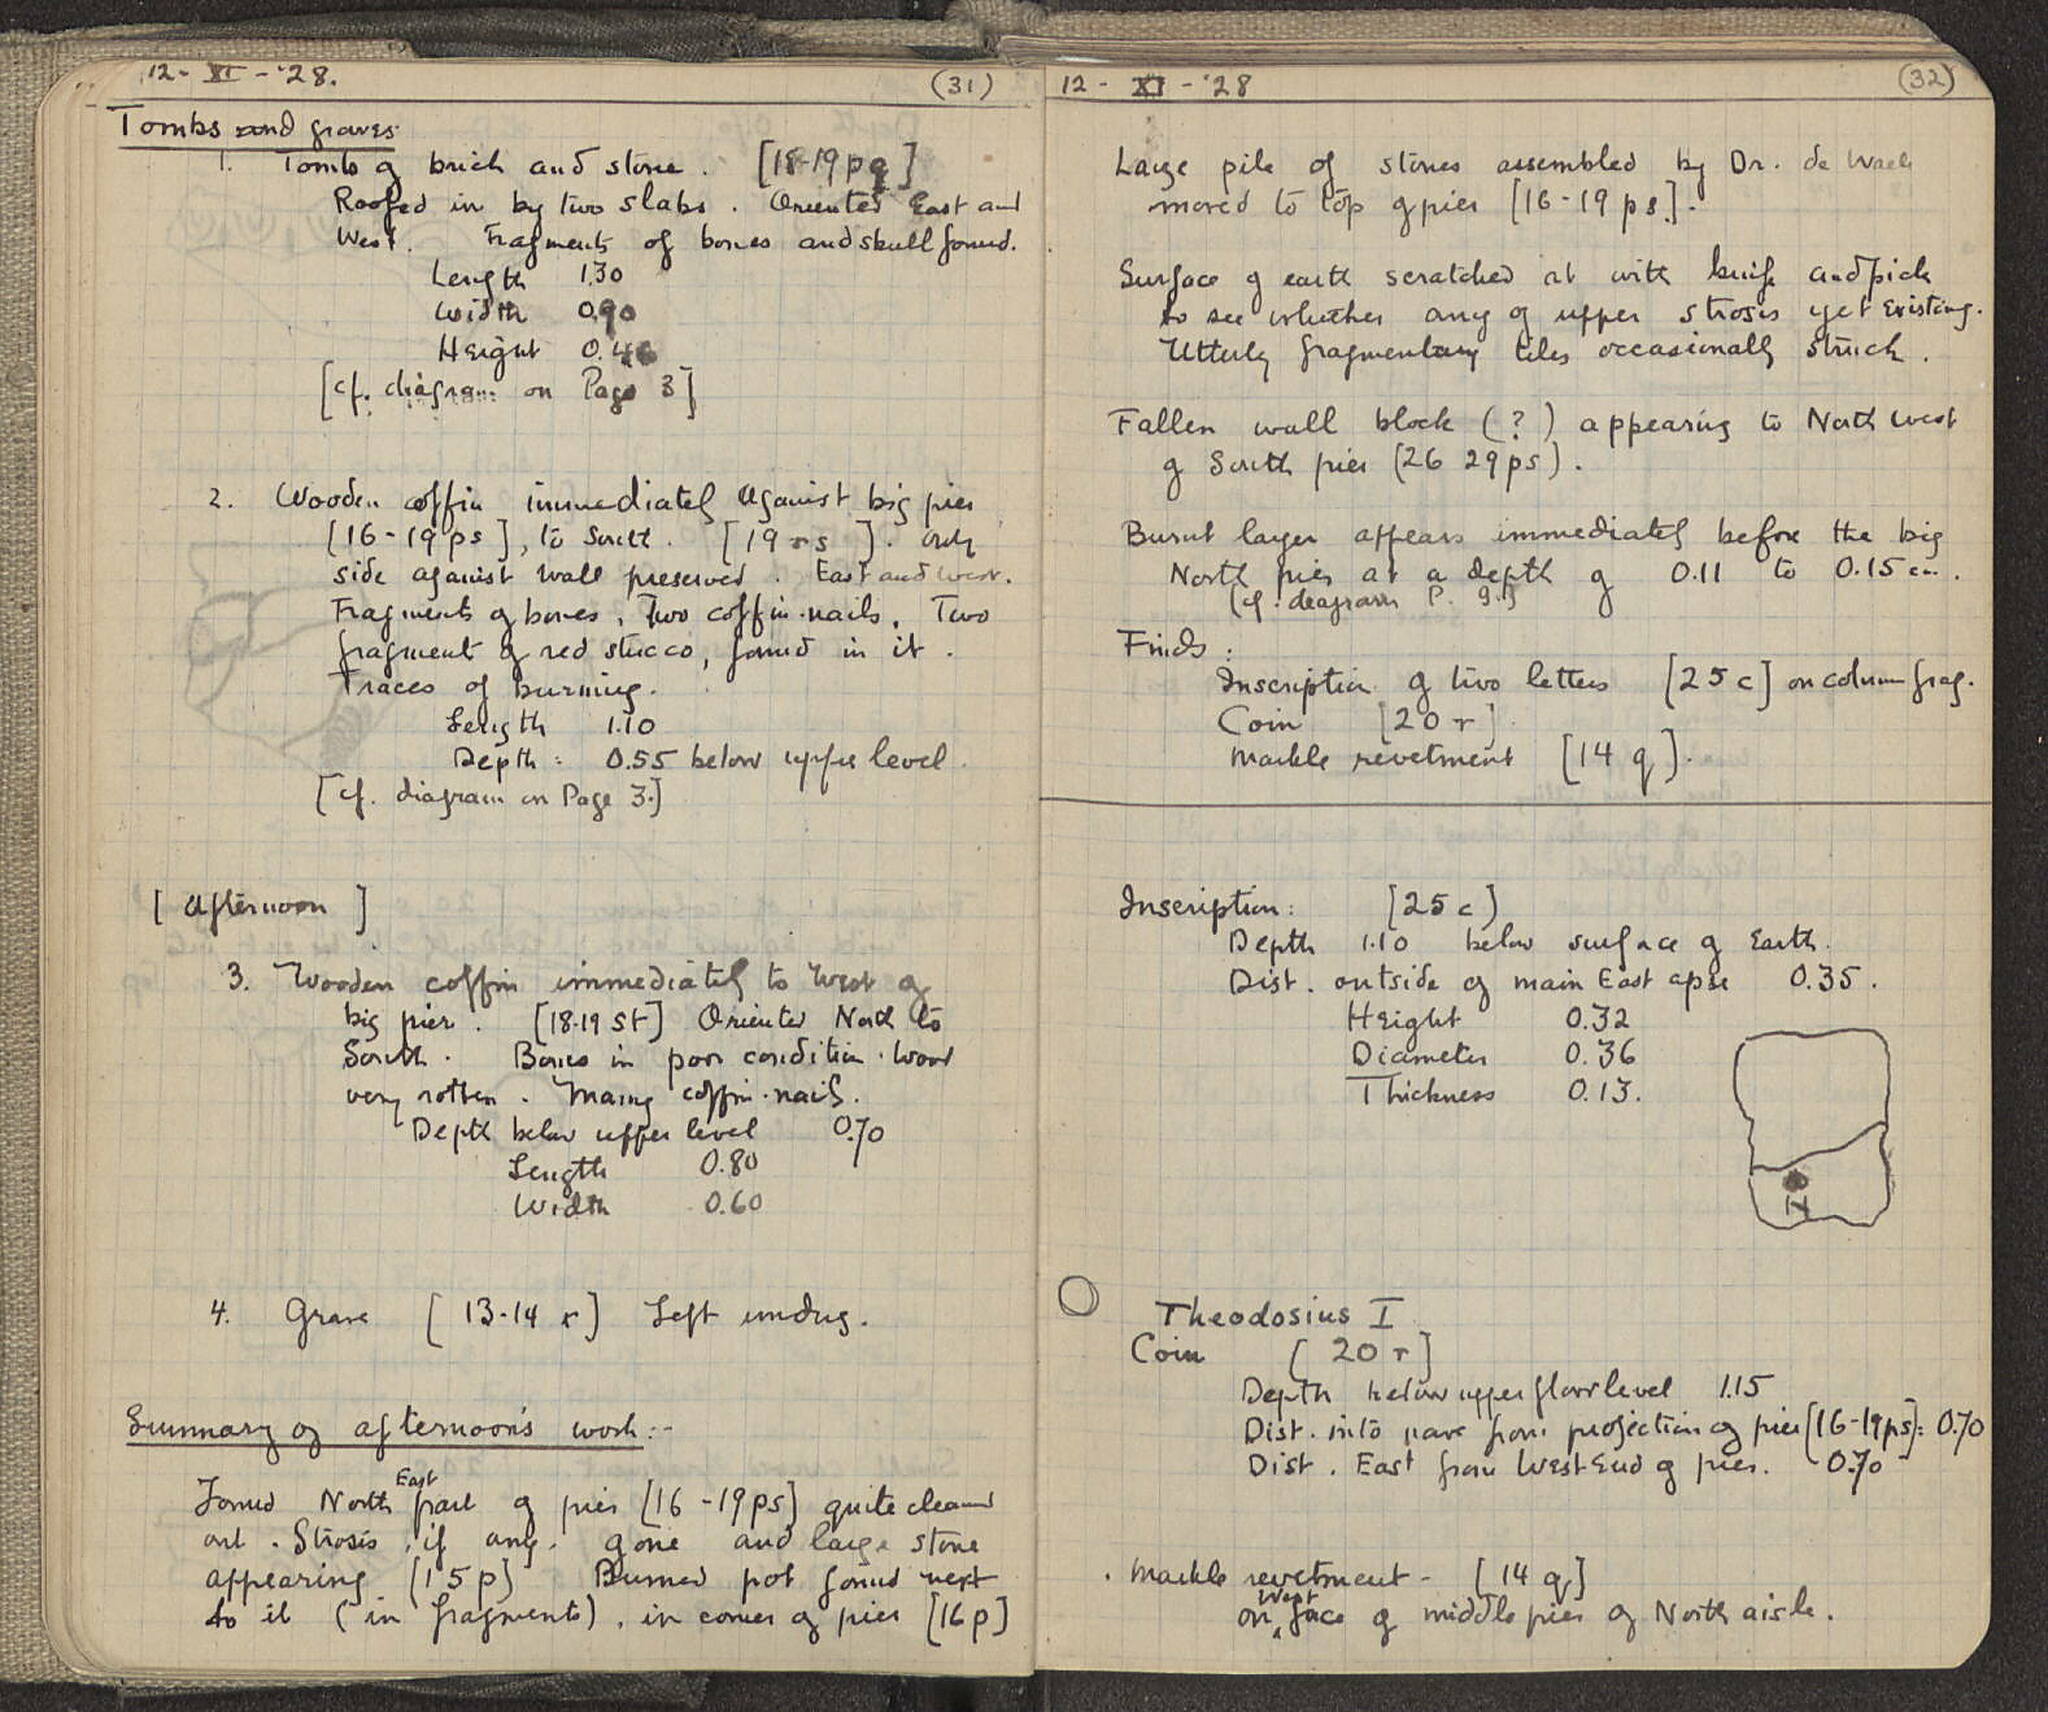 12 - XI - '28. (31)
Tombs and graves
1. Tomb of brick and stone. [18-19 pq]
Roofed in by two slabs. Oriented East and
West. Fragments of bones and skull found.
Length 1.30
Width 0.90
Height 0.46
[cf. diagram on Page 3]
2. Wooden coffin immediately against big pier
[16-19 ps], to South. [19 rs]. Only
side against wall preserved. East and West.
Fragments of bones, Two coffin-nails, Two
fragment of red stucco, found in it.
Traces of burning.
Length 1.10
Depth: 0.55 below upper level.
[cf. diagram on Page 3.]
[Afternoon]
3. Wooden coffin immediately to West of
big pier. [18-19 st] Oriented North to
South. Bones in poor condition. Wood
very rotten. Many coffin-nails.
Depth below upper level 0.70
Length 0.80
Width 0.60
4. Grave [13-14 r] Left undug.
Summary of afternoon's work:-
Found North East part of pier [16-19 ps] quite cleaned
out. Strosis, if any, gone and large stone
appearing [15 p] Burned pot found next
to it (in fragments), in corner of pier [16 p]
12 - XI - '28 (32)
Large pile of stones assembled by Dr. de Waele
moved to top of pier [16-19 ps].
Surface of earth scratched at with knife and pick
to see whether any of upper strosis yet existing.
Utterly fragmentary tiles occasionally struck.
Fallen wall block (?) appearing to North West
of South pier (26 29 ps).
Burnt layer appears immediately before the big
North pier at a depth of 0.11 to 0.15 cm.
(cf. diagram P. 9.)
Finds:
Inscription of two letters [25 c] on column frag.
Coin [20 r]
Marble revetment [14 q].
Inscription: [25 c]
Depth 1.10 below surface of Earth.
Dist. outside of main East apse 0.35.
Height 0.32
Diameter 0.36
Thickness 0.13.
Theodosius I
Coin [20 r]
Depth below upper floor level 1.15
Dist. into nave from projection of pier [16-19 ps]: 0.70
Dist. East from West End of pier. 0.70
Marble revetment - [14 q]
on West face of middle pier of North aisle.